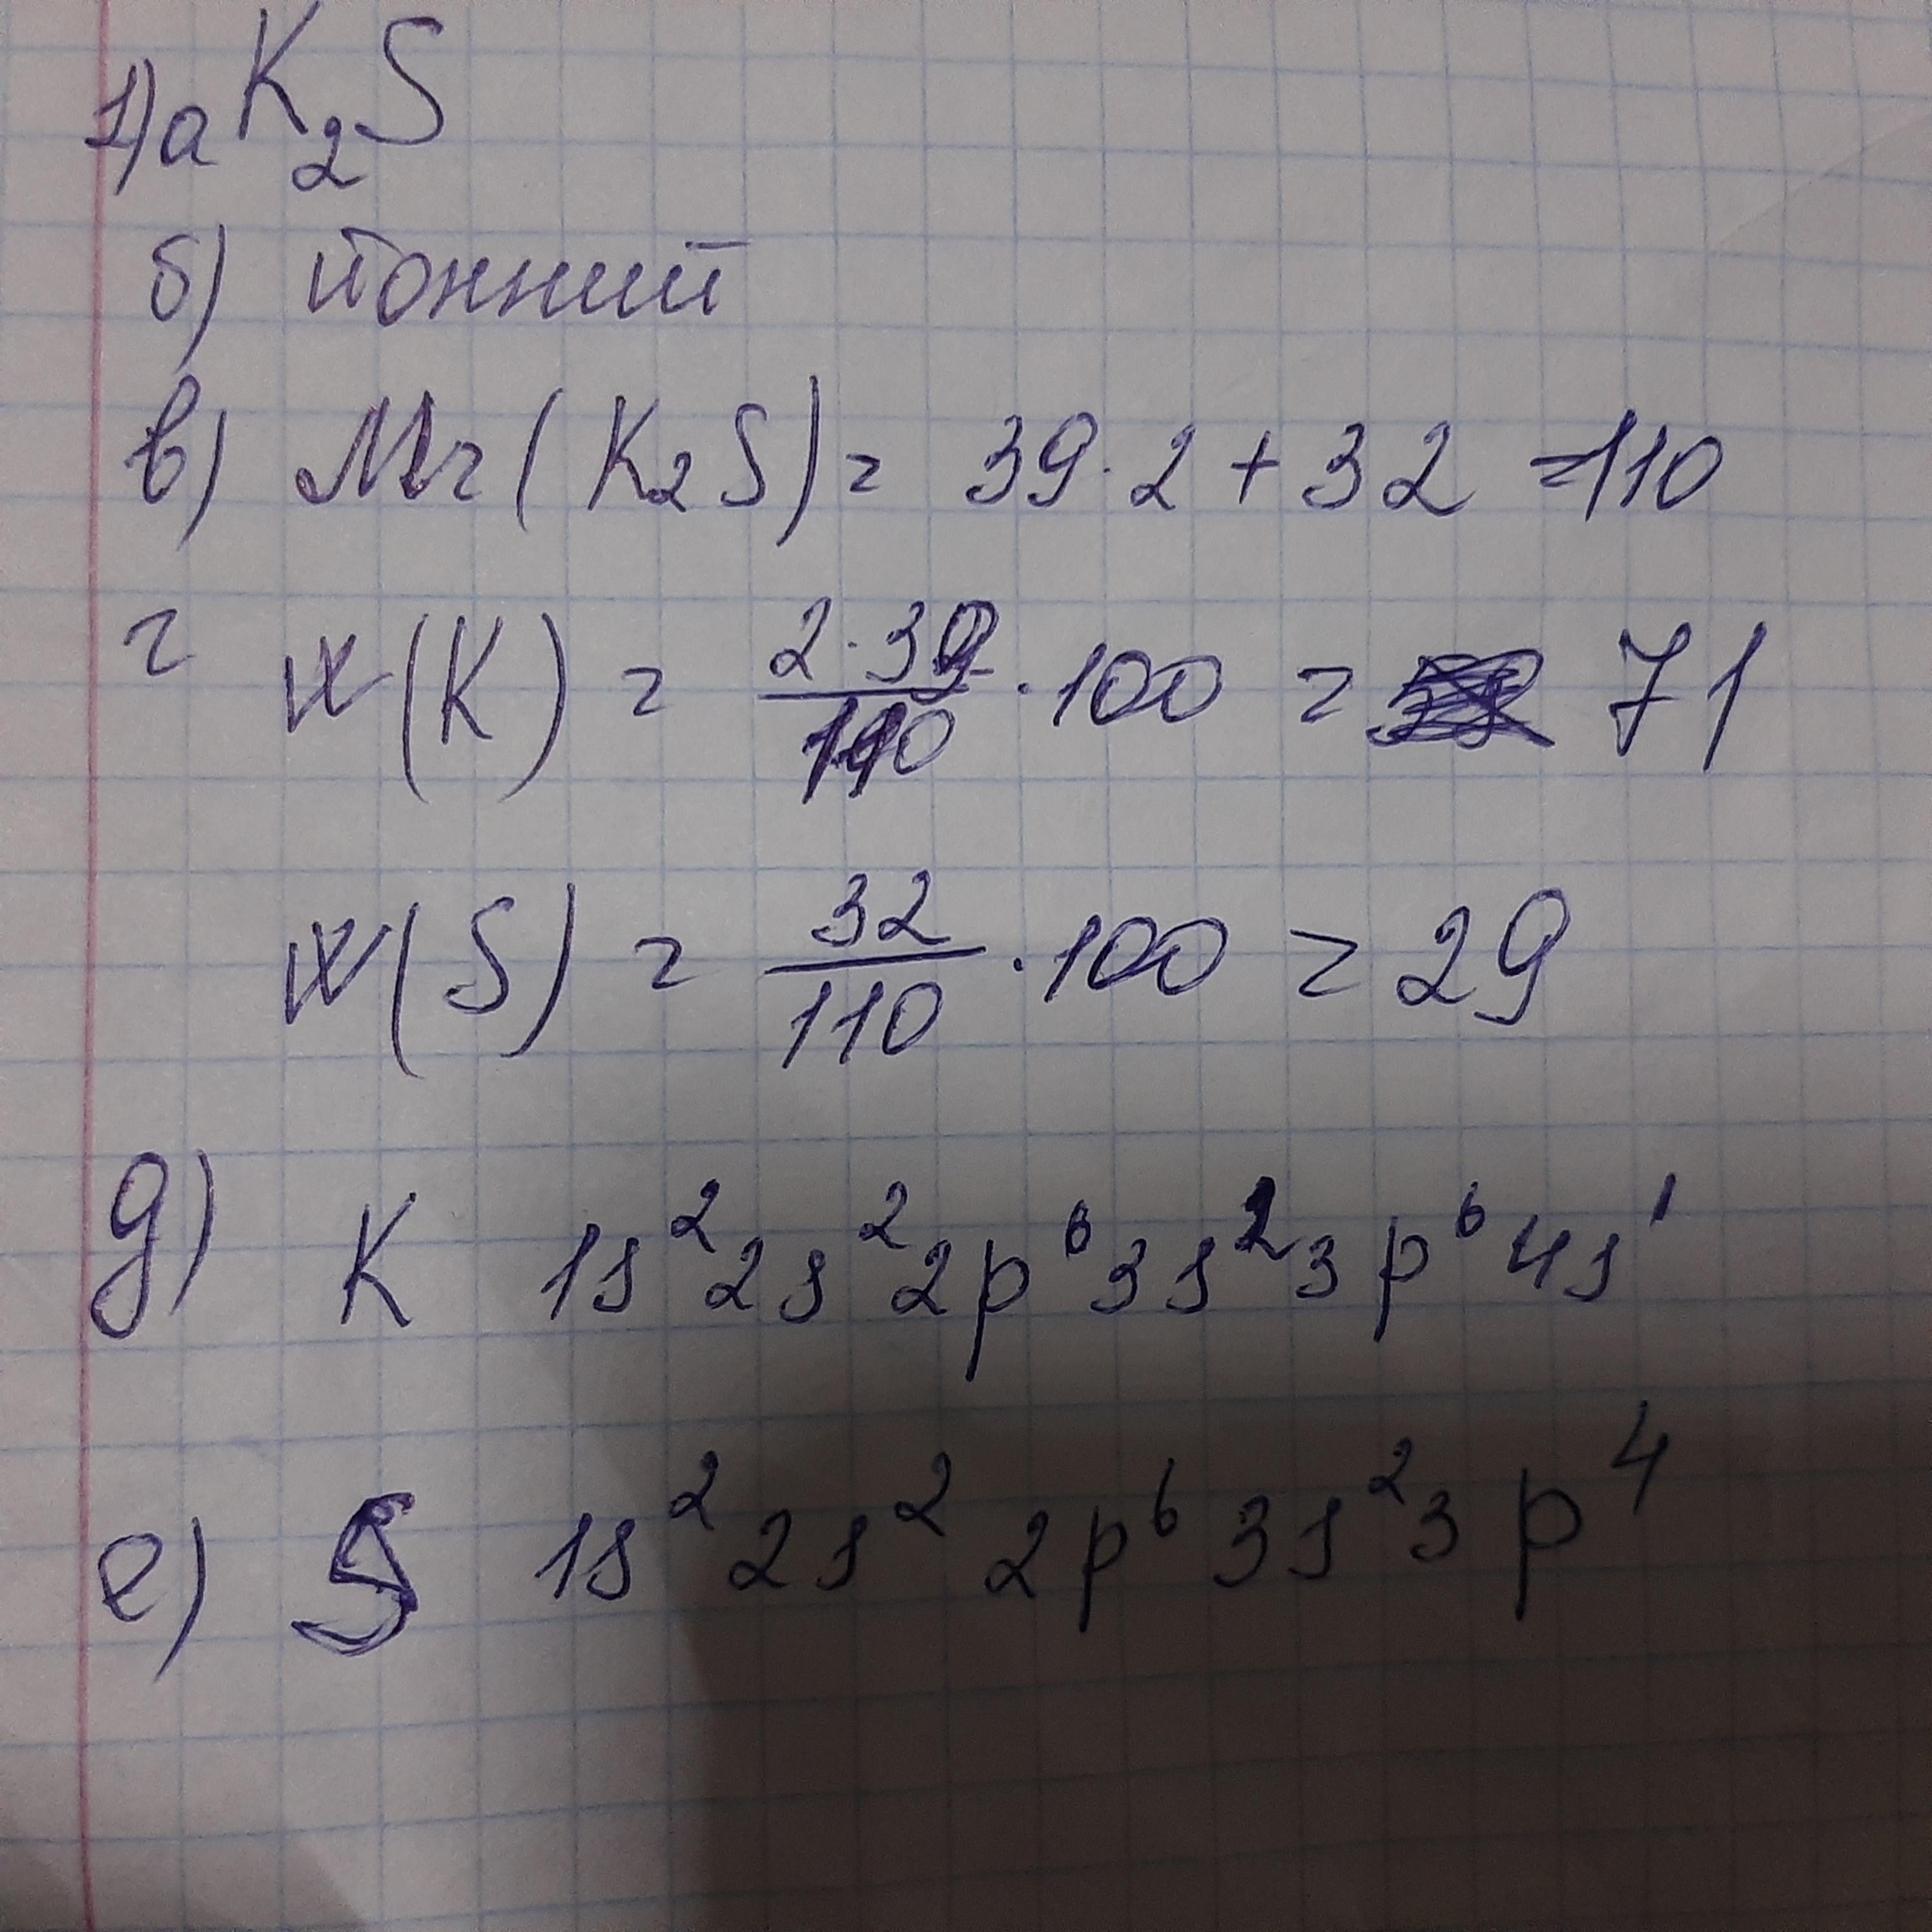 1)а K₂S
б) йонний
в) Mr(K₂S)= 39·2+32=110
г w(K) = 2·39/110 ·100 = 71
w(S) = 32/110 ·100 = 29
д) K 1s²2s²2p⁶3s²3p⁶4s¹
е) S 1s²2s²2p⁶3s²3p⁴